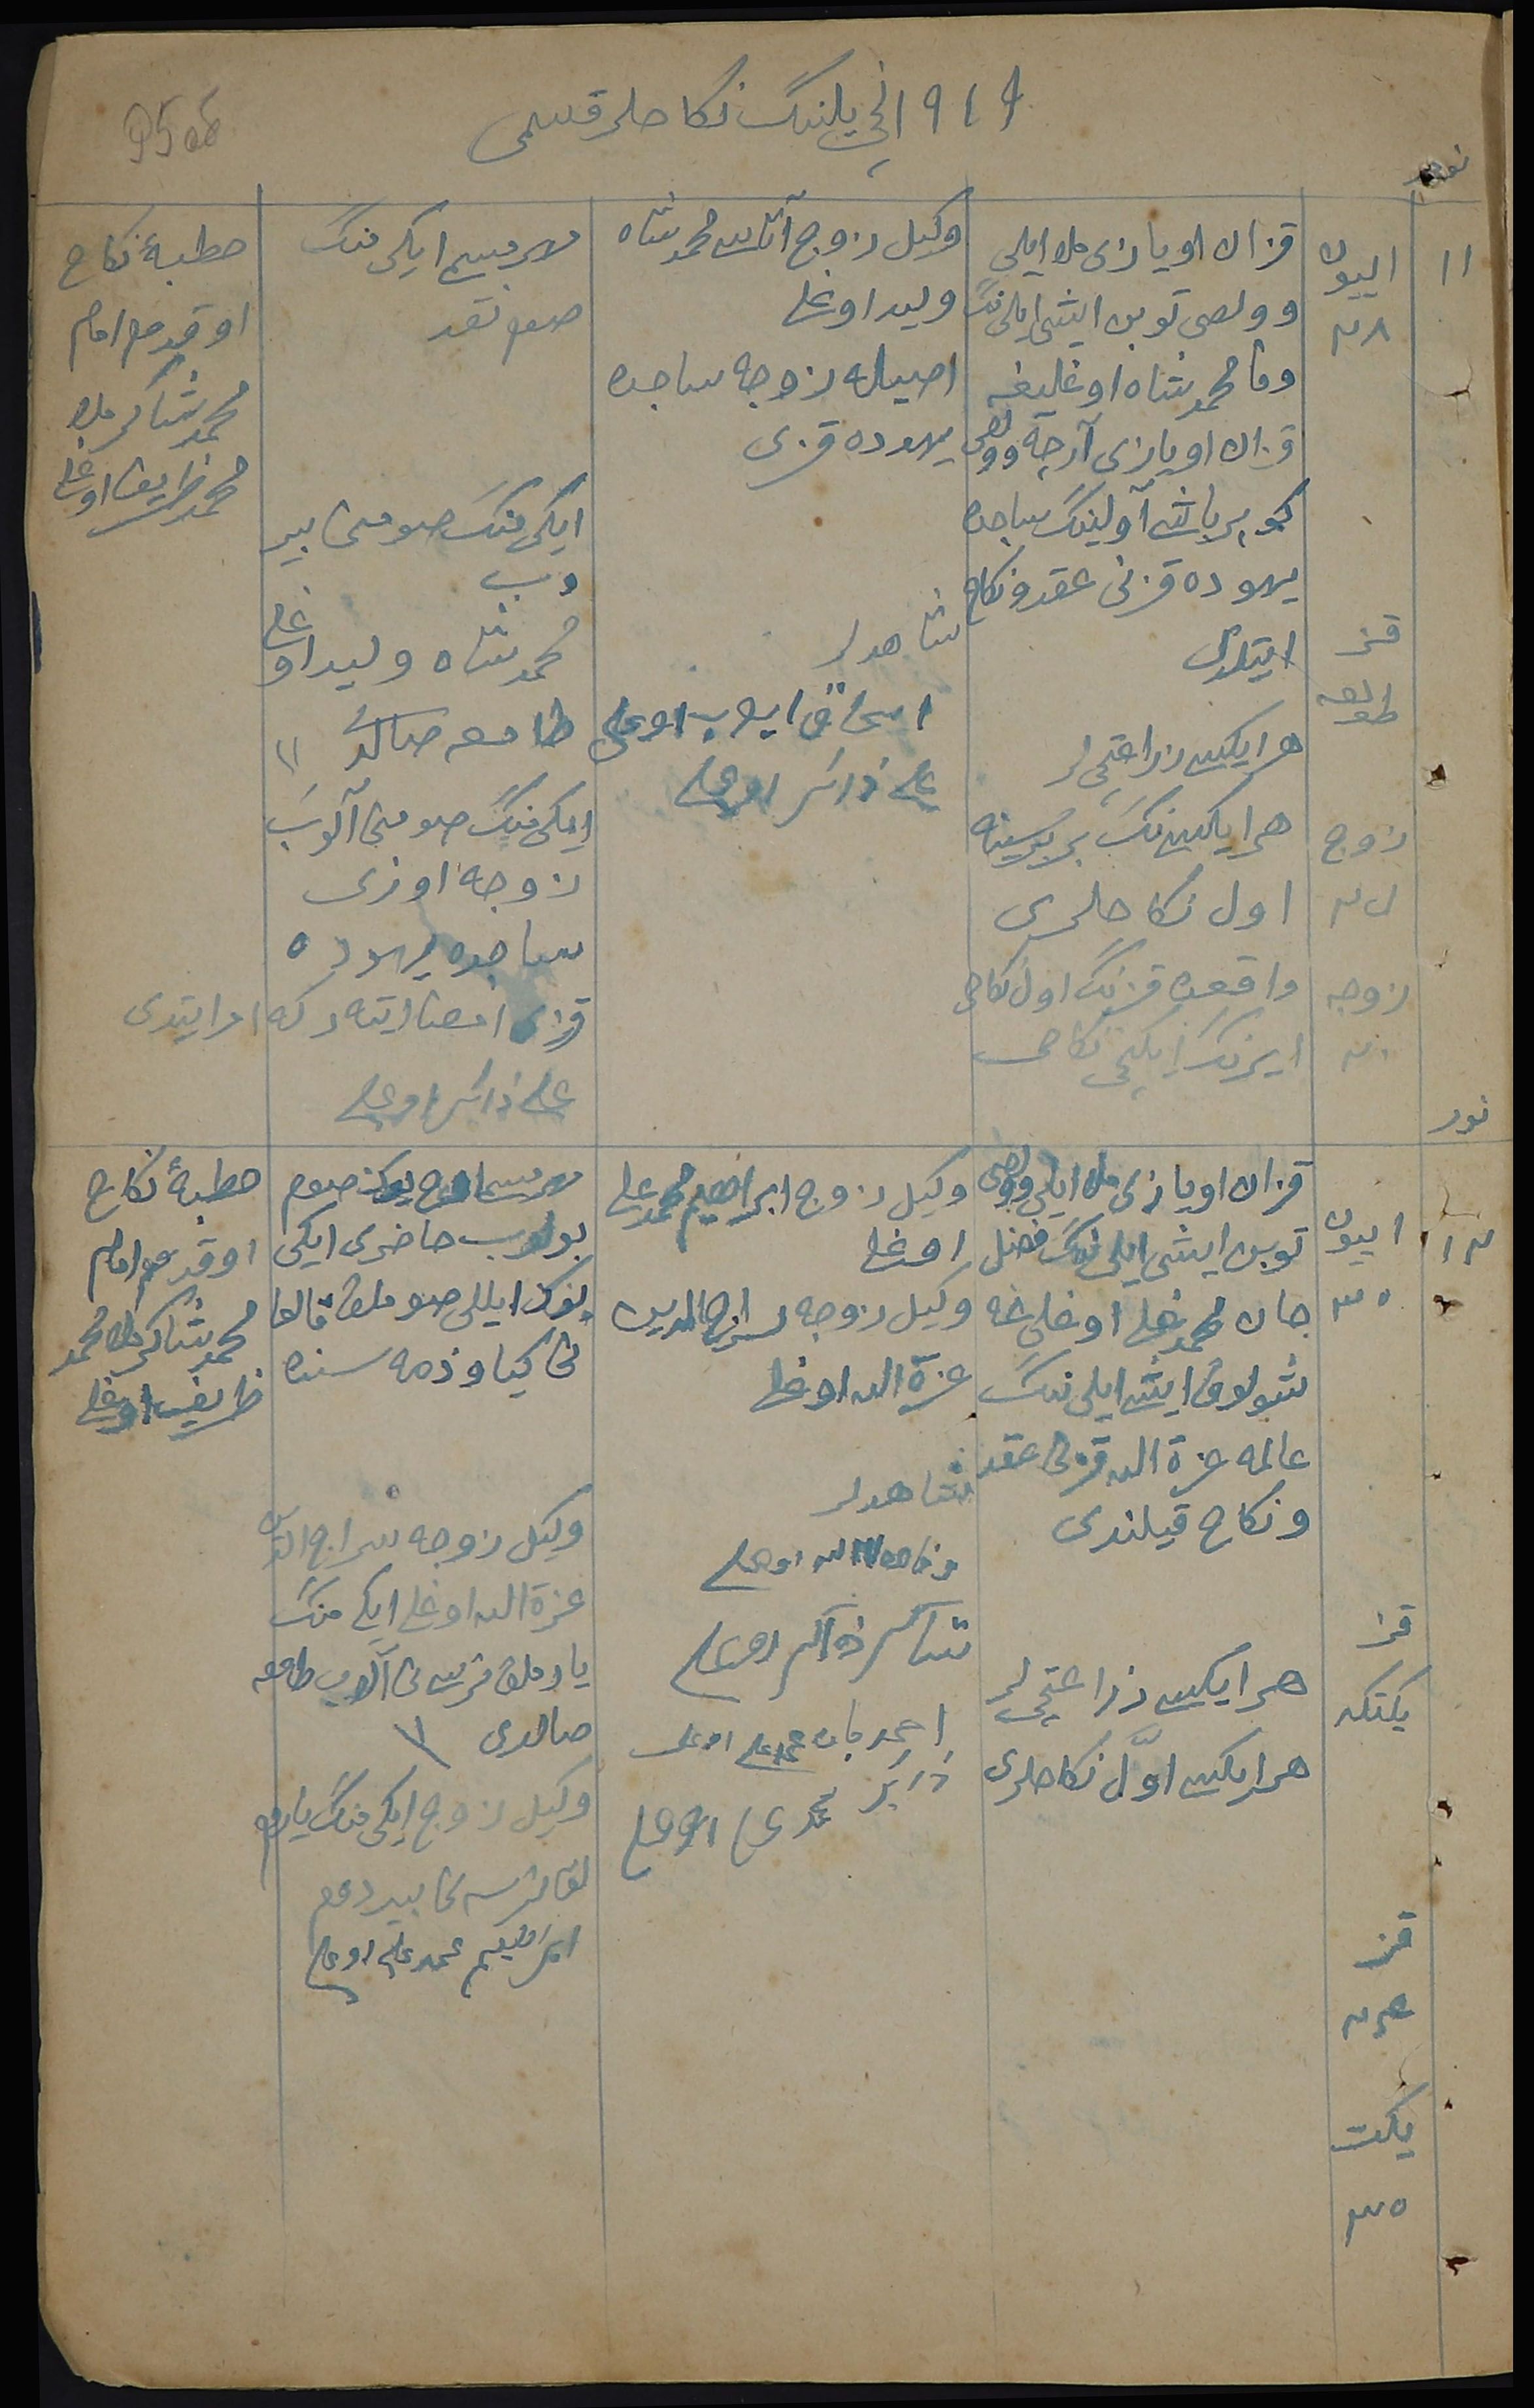 ۱۹۱۹ نچی یلننگ نکاحلر قسمی
نومر
۱۱
ایون
۲۸
قزان اویازی ملا ایلی
وولصی توبن ایشی ایلی ننگ
محمدشاه اوغلیغه
قزان اویازی آرچه وولصی
کوپر باشی آولیننگ ساجده
یهوده قزنی عقد و نکاح
ایتلدی
هر ایکیسی زراعتچیلر
هر ایکیسی ننگ بر برسینه
اول نکاحلری
واقعده قزننگ اول نکاحی
ایرننگ ایکنچی نکاحی
قز
زوج
زوجه
۲۰
وکیل زوج آتاسی محمدشاه
ولید اوغلی
اصیله زوجه ساجده
یهوده قزی
شاهدلر
اسحاق ایوب اوغلی
علی ذاکر اوغلی
مهر مسمی ایکی منگ
صوم نقد
ایکی منگ صومنی بیر
دب
محمدشاه ولید اوغلی
طامغه صالدی \\
ایکی منگ صومنی آلوب
زوجه اوزی
ساجده یهوده
قزی امضا ایته رگه امر ایتدی
علی ذاکر اوغلی
خطبهٔ نکاح
اوقدم امام
محمدشاکر ملا
محمدظریف اوغلی
نومر
۱۲
ایون
۳۰
قزان اویازی ملا ایلی وولصی
توبن ایشی ایلی ننگ فضل
جان محمدعلی اوغلی غه
شولوق ایشی ایلی ننگ
عالمه عزة الله قزنی عقد
و نکاح قیلندی
هر ایکیسی زراعتچیلر
هر ایکیسی اوّل نکاحلری
قز
یکتکه
قز
یکت
۳۵
وکیل زوج ابراهیم محمدعلی
اوغلی
وکیل زوجه سراج الدین
عزة الله اوغلی
شاهدلر
شاکر ذاکر اوغلی
احمدجان محمدعلی اوغلی
ذاکر محمدی اوغلی
مهر مسمی اوچ یوز صوم
بولوب حاضری ایکی
یوز ایللی صوملق قالغا
نی کیاو ذمه سنده
وکیل زوجه سراج الدین
عزة الله اوغلی ایکی منگ
یارملق نرسه نی آلوب طامغه
صالدی \\
وکیل زوج ایکی منگ یارم
لق نرسه نی بیردم
ابراهیم محمدعلی اوغلی
خطبهٔ نکاح
اوقدم امام
محمدشاکر ملا محمد
ظریف اوغلی